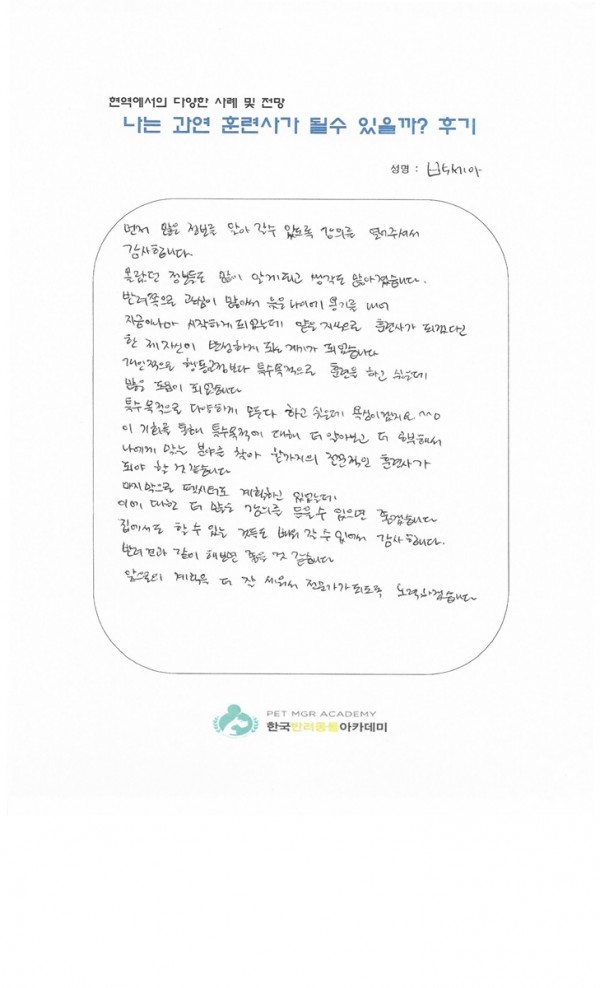 현역에서의 다양한 사례 및 전망
나는 과연 훈련사가 될수 있을까? 후기
성명 :
먼저 많은 정보를 알아 갈수 있도록 강의를 열어주셔서
감사합니다.
몰랐던 정보들도 많이 알게되고 생각도 많아졌습니다.
반려쪽으로 관심이 많아서 늦은나이에 용기를 내어
지금이나마 시작하게 되었는데 많은 지식으로 훈련사가 되겠다던
한 제 자신이 반성하게 되는 계기가 되었습니다
개인적으로 행동교정보다 특수목적으로 훈련을 하고 싶은데
많은 도움이 되었습니다
특수목적으로 다양하게 모두다 하고싶은데 욕심이겠지요. ^^
이 기회를 통해 특수목적에 대해 더 알아보고 더 공부해서
나에게 맞는 분야를 찾아 한가지의 전문적인 훈련사가
되야 할 것 같습니다
마지막으로 펫시터도 계획하고 있었는데
이에 대한 더 많은 강의를 들을수 있으면 좋겠습니다
집에서도 할 수 있는 것들도 배워 갈 수 있어서 감사합니다.
반려견과 같이 해보면 좋을 것 같습니다
앞으로의 계획을 더 잘 세워서 전문가가 되도록 노력하겠습니다
PET MGR ACADEMY
한국반려동물아카데미